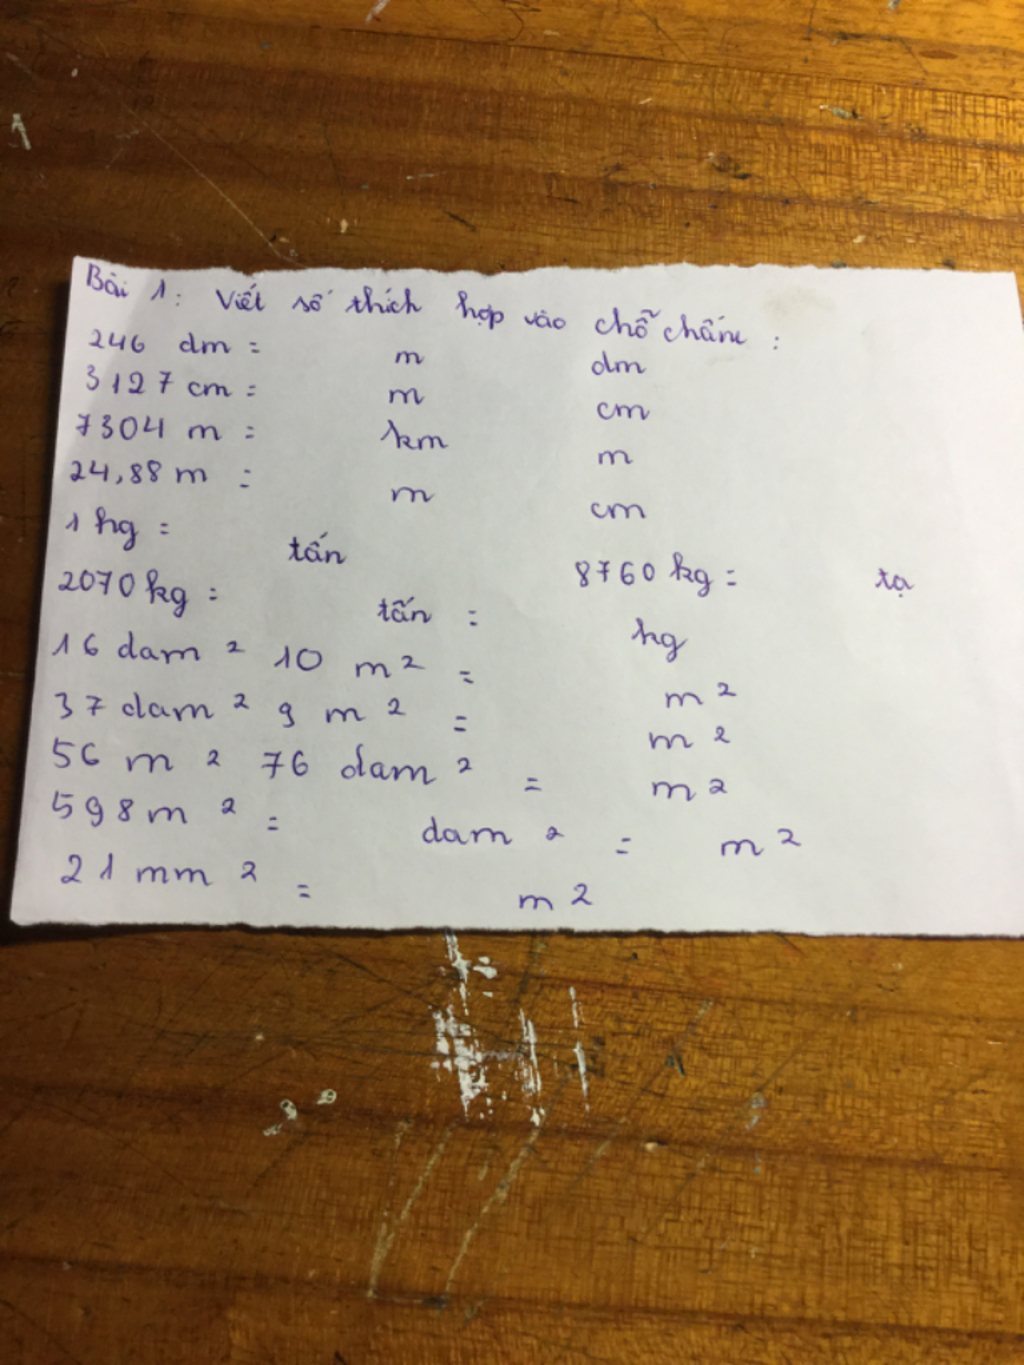 Bài 1: Viết số thích hợp vào chỗ chấm:
246 dm = m dm
3127 cm = m cm
7304 m = km m
24,88 m = m cm
1 kg = tấn
8760 kg = tạ
2070 kg = tấn = kg
16 dam 2 10 m 2 = m 2
37 dam 2 9 m 2 = m 2
56 m 2 76 dam 2 = m 2
598 m 2 = dam 2 = m 2
21 mm 2 = m 2